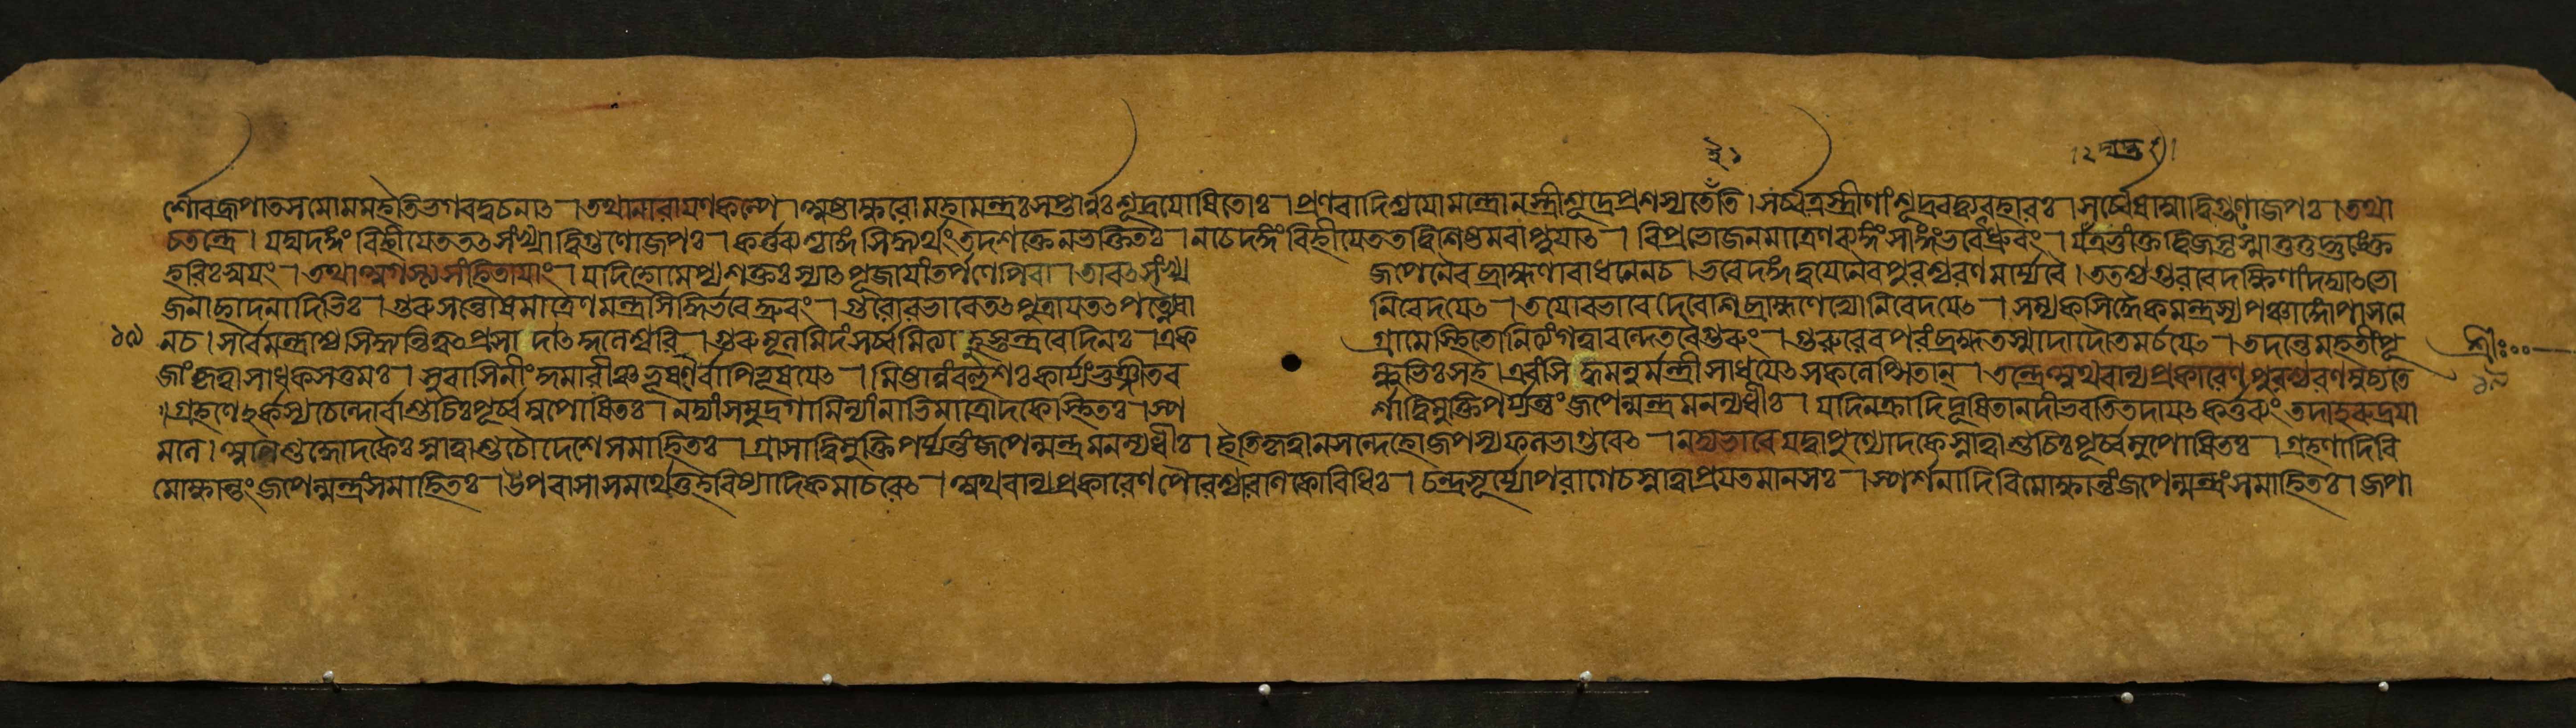 র্শোবজ্রপাতসমোমমহৈতিভগবদ্বচনাৎ । তথানারায়ণকল্পে । অষ্টাক্ষরোমহামন্ত্রঃসপ্তার্ন্নঃশূদ্রযোষিতোঃ । প্রণবাদিশ্চযোমন্ত্রোনস্ত্রীশূদ্রেপ্রশস্যতেইতি । সর্ব্বত্রস্ত্রীণাংশূদ্রবদ্ব্যবহারঃ । সর্ব্বেষাম্বাদ্বিগুণোজপঃ । তথা
চতন্ত্রে । যদ্যদঙ্গংবিহীয়েততৎসংখ্যাদ্বিগুণোজপঃ । কর্ত্তব্যশ্চাঙ্গসিদ্ধ্যর্থংতদশক্তেনভক্তিতঃ । নচেদঙ্গংবিহীয়েততদ্বিশিষ্টমবাপ্নুয়াৎ । বিপ্রভোজনমাত্রেণব্যঙ্গংসাঙ্গংভবেদ্ধ্রুবং । যত্রভুংক্তেদ্বিজস্তস্মাত্তত্রভুংক্তে
হরিঃস্বয়ং । তথাঅগস্ত্যসংহিতায়াং । যদিহোমেপ্যশক্তঃস্যাৎপূজায়াংতর্পণেপিবা । তাবৎসংখ্য জপেনৈবব্রাহ্মণারাধনেনচ । ভবেদঙ্গদ্বয়েনৈবপুরশ্চরণমার্য্যবৈ । ততশ্চগুরবেদক্ষিণাংদদ্যাৎভো
জনাচ্ছাদনাদিভিঃ । গুরুসন্তোষমাত্রেণমন্ত্রসিদ্ধির্ভবেদ্ধ্রুবং । গুরোরভাবেতৎপুত্রায়তৎপত্ন্যৈবা নিবেদয়েৎ । তয়োরভাবেদেবেশিব্রাহ্মণেভ্যোনিবেদয়েৎ । সম্যকসিদ্ধৈকমন্ত্রস্যপঞ্চাঙ্গোপাসনে
১৯ নচ । সর্বেমন্ত্রাশ্চসিদ্ধ্যন্তিত্বৎপ্রসাদাৎকুলেশ্বরি । গুরুমূলমিদংসর্ব্বমিত্যাহুস্তন্ত্রবেদিনঃ । এক গ্রামেস্থিতোনিত্যংগত্বাবন্দেতবৈগুরুং । গুরুরেবপরংব্রহ্মতস্মাদাদৌতমর্চয়েৎ । তদন্তেমহতীংপূ শ্রীঃ
জাংকৃত্বাসাধকসত্তমঃ । সুবাসিনীংকুমারীঞ্চভূষণৈরপিভূষয়েৎ । মিষ্টান্নংবহুশঃকার্য্যংভুঞ্জীতব ন্ধুভিঃসহ । এবংসিদ্ধমনুর্মন্ত্রীসাধয়েৎসকলেপ্সিতান্ । তন্ত্রেঅথবান্যপ্রকারেণপুরশ্চরণমুচ্যতে ১৯
। গ্রহণেঽর্কস্যচেন্দোর্বাশুচিঃপূর্ব্বমুপোষিতঃ । নদ্যাংসমুদ্রগামিন্যাংনাভিমাত্রোদকেস্থিতঃ । স্প র্শাদ্বিমুক্তিপর্য্যন্তংজপেন্মন্ত্রমনন্যধীঃ । যদিনক্রাদিদূষিতানদীভবতিতদায়ৎকর্ত্তব্যংতদাহরুদ্রযা
মলে । অপিশুদ্ধোদকৈঃস্নাত্বাশুচৌদেশেসমাহিতঃ । গ্রাসাদ্বিমুক্তিপর্য্যন্তংজপেন্মন্ত্রমনন্যধীঃ । ইতিকৃত্বানসন্দেহোজপস্যফলভাগ্ভবেৎ । নদ্যভাবেযদ্বাপুণ্যোদকেস্নাত্বাশুচিঃপূর্ব্বমুপোষিতঃ । গ্রহণাদিবি
মোক্ষান্তংজপেন্মন্ত্রংসমাহিতঃ । উপবাসাসমর্থেতুহবিষ্যাদিকমাচরেৎ । অথবান্যপ্রকারেণপৌরশ্চারণিকোবিধিঃ । চন্দ্রসূর্য্যোপরাগেচস্নাত্বাপ্রযতমানসঃ । স্পর্শনাদিবিমোক্ষান্তংজপেন্মন্ত্রংসমাহিতঃ । জপা